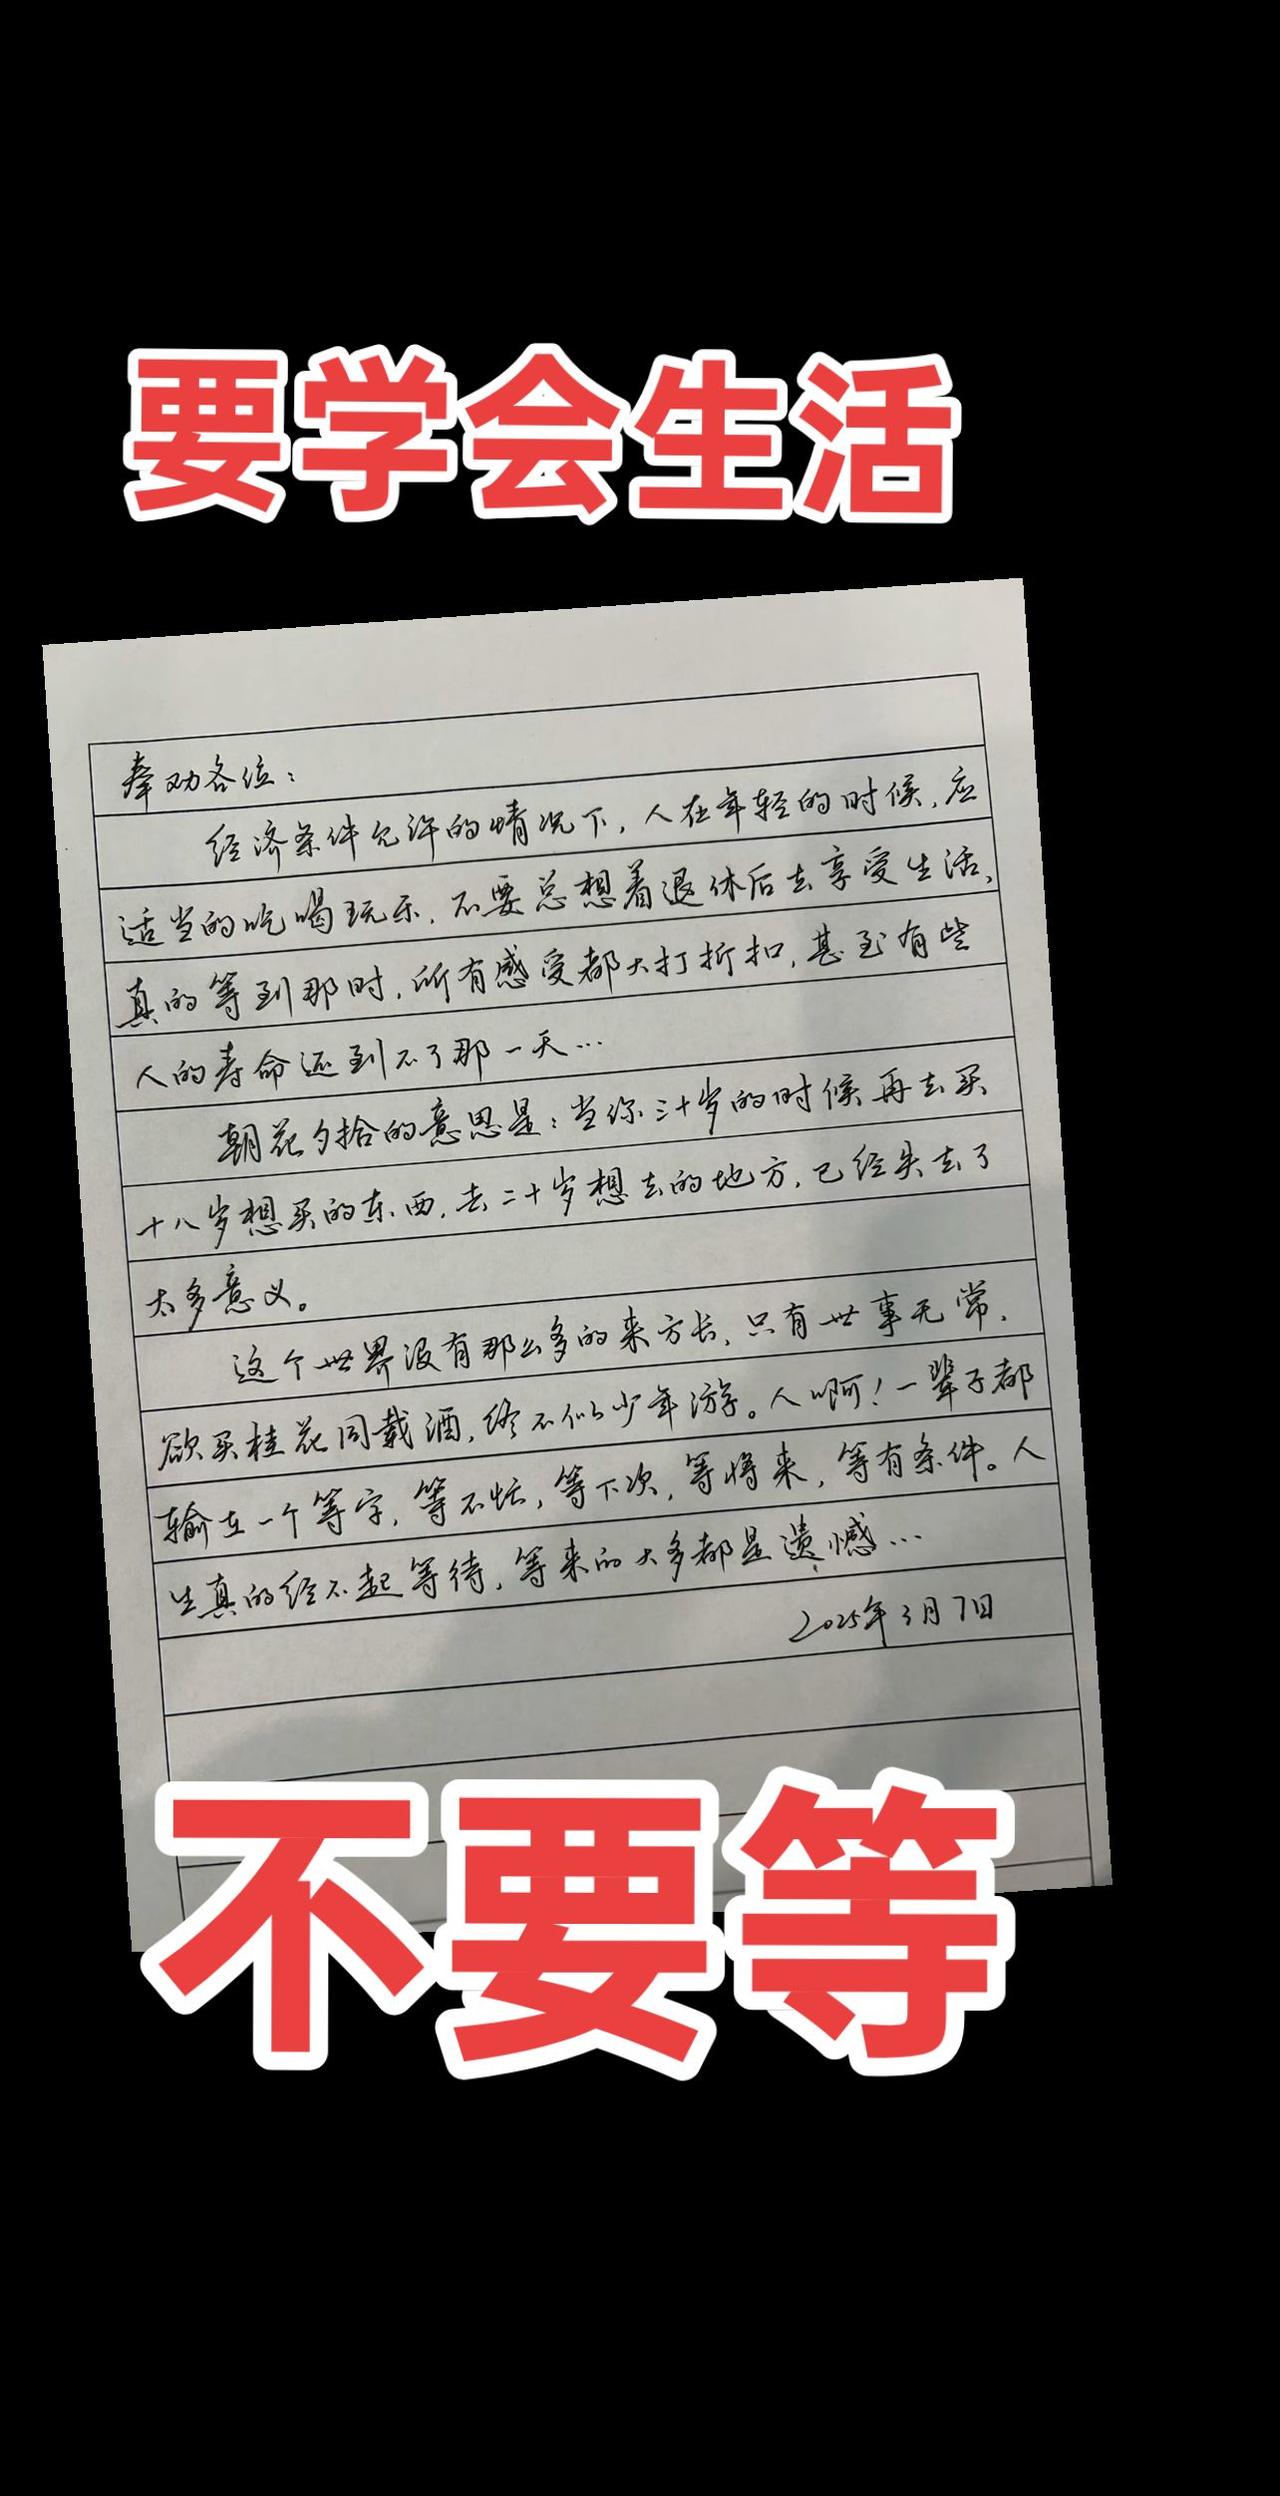 要学会生活
奉劝各位：
经济条件允许的情况下，人在年轻的时候，应
适当的吃喝玩乐，不要总想着退休后去享受生活、
真的等到那时，所有感受都大打折扣，甚至有些
人的寿命还到不了那一天…
朝花夕拾的意思是：当你三十岁的时候再去买
十八岁想买的东西，去二十岁想去的地方，已经失去了
太多意义。
这个世界没有那么多的来方长，只有世事无常，
欲买桂花同载酒，终不似少年游。人啊！一辈子都
输在一个等字，等不忙，等下次，等将来，等有条件。人
生真的经不起等待，等来的大多都是遗憾…
2025年3月7日
不要等